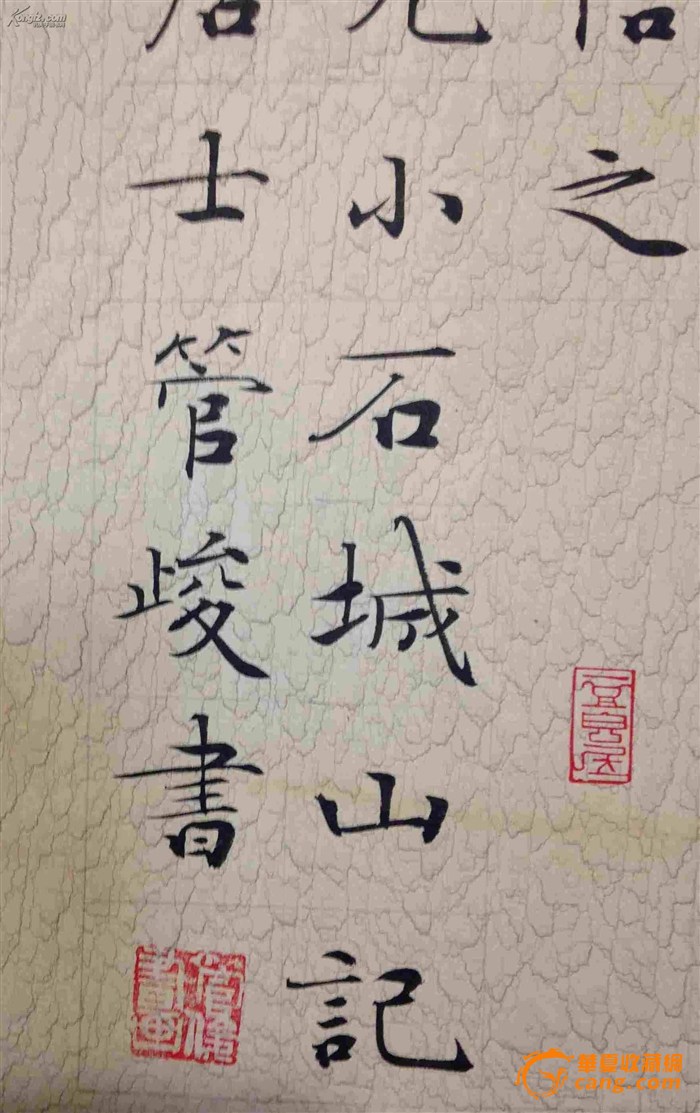 信之
元小石城山記
居士管峻書
華夏收藏網
cang.com